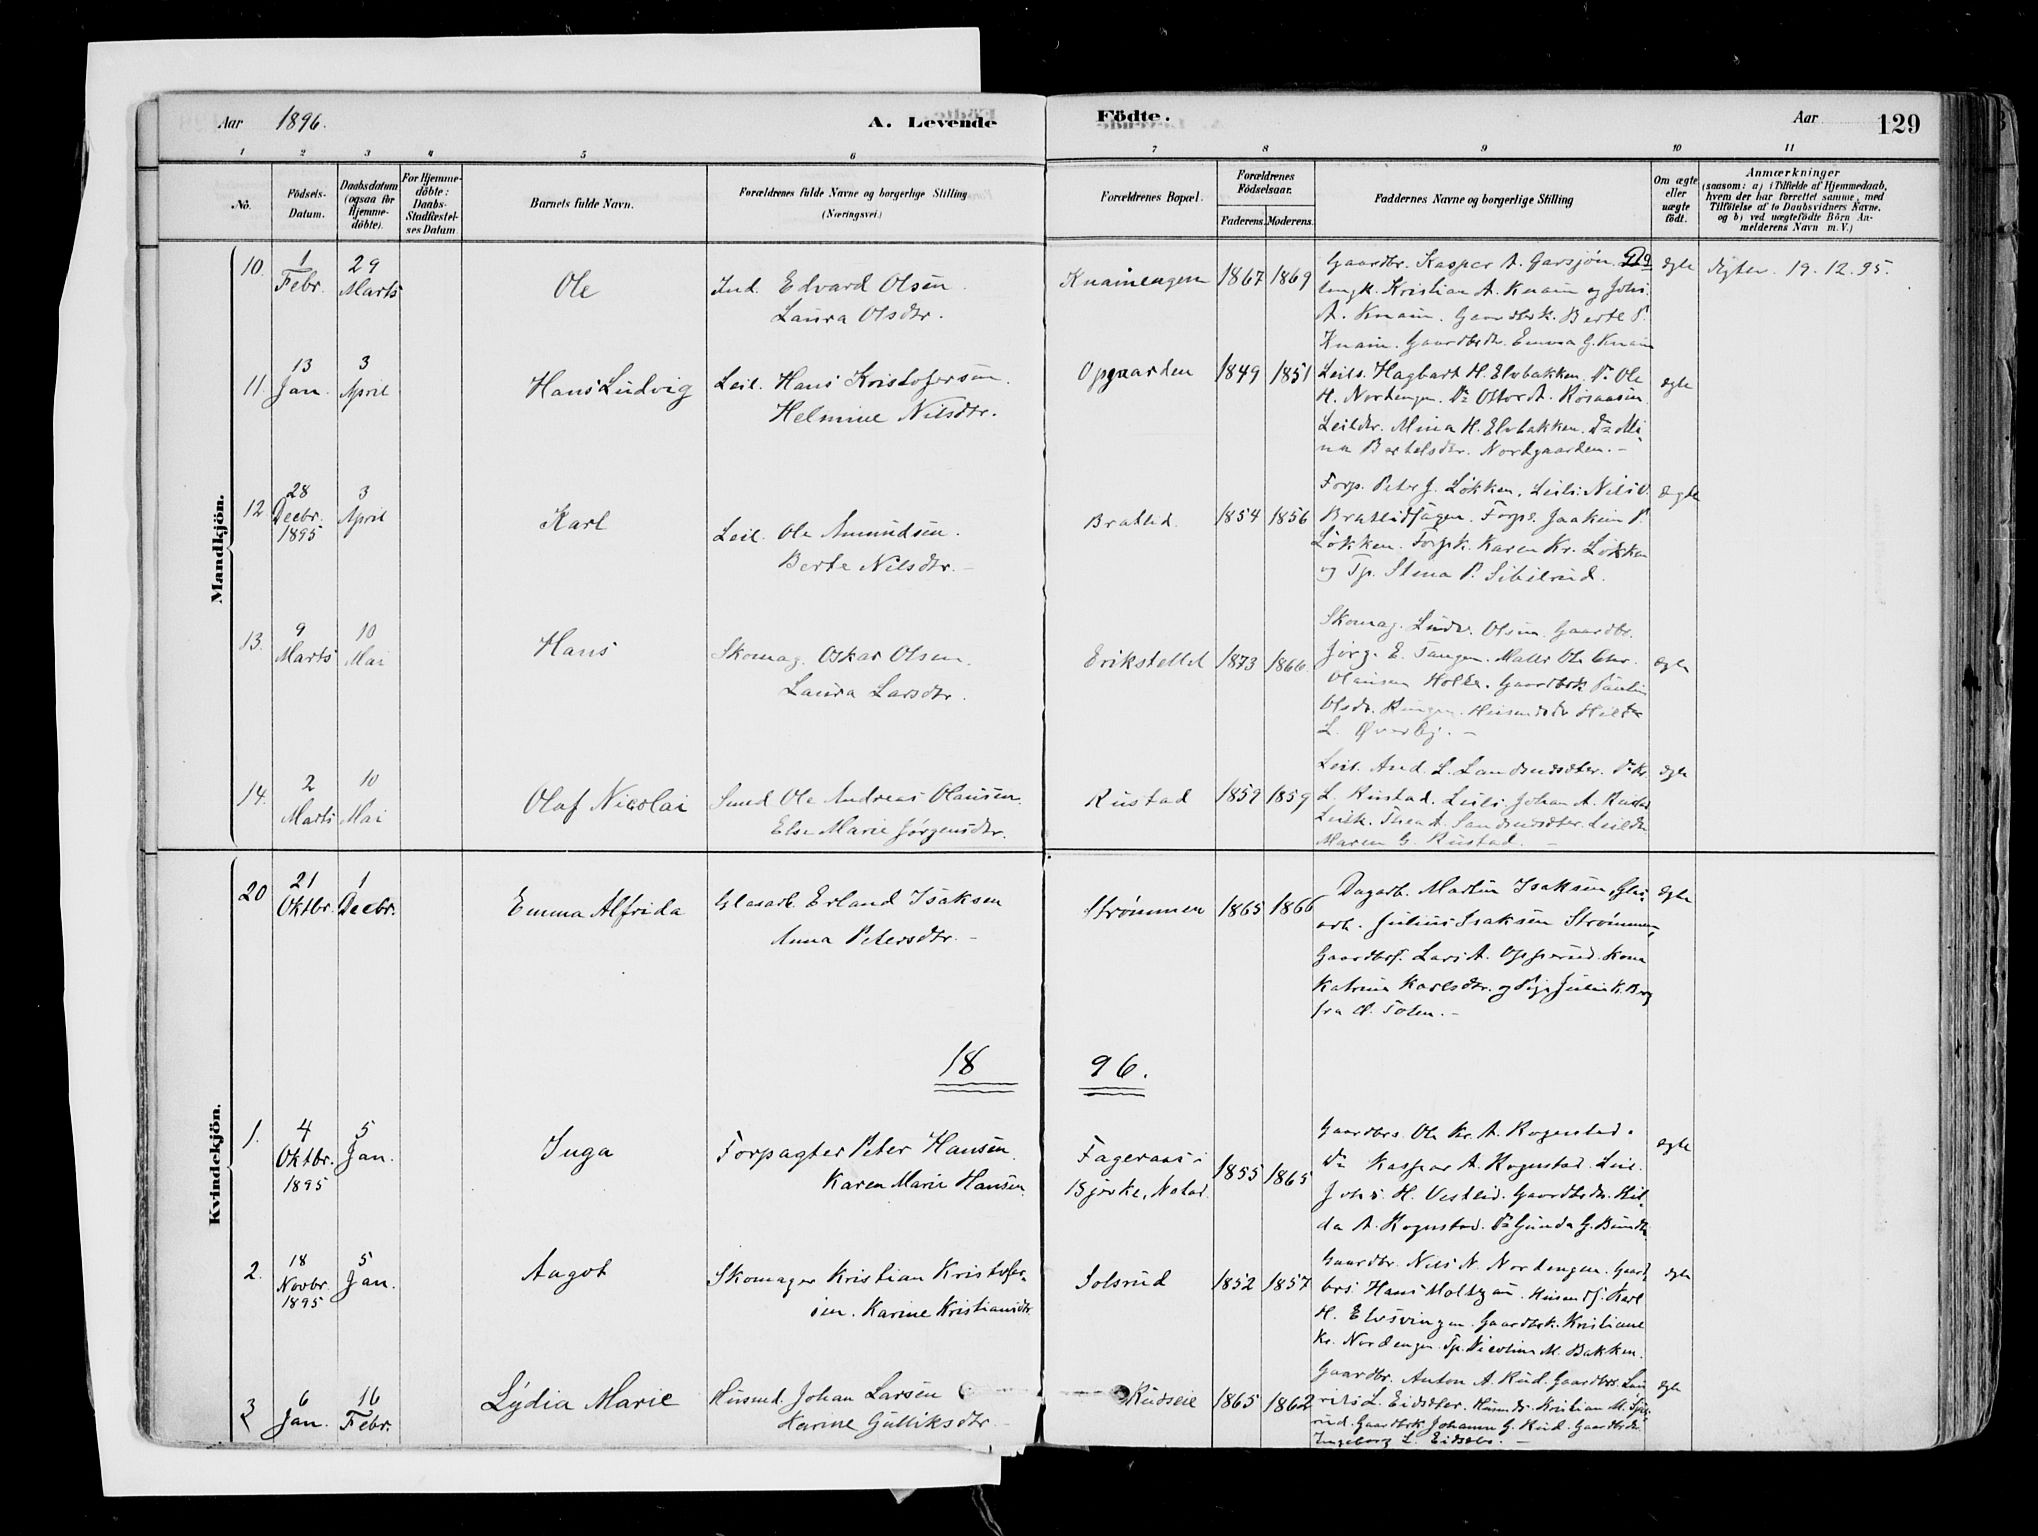 Aar 1896. A. Levende Födte. Aar 129
1 2 3 4 5 6 7 8 9 10 11
No. Födsels-Datum. Daabsdatum (ogsaa for Hjemme-döbte). For Hjemme-döbte: Daabs-Stadfæstel-ses Datum Barnets fulde Navn. Forældrenes fulde Navne og borgerlige Stilling (Næringsvei.) Forældrenes Bopæl. Forældrenes Födselsaar. Faderens. Moderens. Faddernes Navne og borgerlige Stilling Om ægte eller uægte födt. Anmærkninger
(saasom: a) i Tilfælde af Hjemmedaab, hvem der har forrettet samme, med Tilföielse af to Daabsvidners Navne. og b) ved uægtefödte Börn Anmelderens Navn m.V.)
Mandkjön.
10. 1 Febr. 29 Marts Ole Ind. Edvard Olsen.
Laura Olsdtr.
Knainengen 1867 1869 Gaardbr. Kasper A. Garsjøn.
Ungk. Kristian A. Knain og Johs.
A. Knain. Gaardbrk. Berte P.
Knain. Gaardbrdtr. Emma G. Knain
ægte ægtev. 19.12.95.
11. 13 Jan. 3 April Hans Ludvig Leil. Hans Kristofersen.
Helmine Nilsdtr.
Opgaarden 1849 1851 Leils. Hagbart H. Elvbakken. Do Ole
H. Nordengen. Do Ottor A. Rosaasen
Leildtr. Mina H. Elvbakken. Do Mi-
na Bertelsdtr. Nordgaarden.
ægte
12 28 Decbr. 1895 3 April Karl Leil. Ole Amundsen.
Berte Nilsdtr.
Bratlid. 1854 1856 Forp. Peter J. Løkken. Leils. Nils O.
Bratlidhagen. Forps. Joakim P.
Løkken. Forpk. Karen Kr. Løkken
og Tp. Stina P. Sibilrud.
ægte
13. 9 Marts 10 Mai Hans Skomag. Oskar Olsen.
Laura Larsdtr.
Erikstellet 1873 1866. Skomag. Ludv. Olsen. Gaardbr.
Jørg. E. Tangen. Maler Ole Chr.
Olausen Holke. Gaardbrk. Paulin
Olsdtr. Ringen. Husmdsdtr Hilda
L. Øverby.
ægte
14. 2 Marts 10 Mai Olaf Nicolai Smed Ole Andreas Olausen.
Else Marie Jørgensdtr.
Rustad 1859 1859 Leil. And. L. Landsndsdter. Do Kr.
L. Rustad. Leils. Johan A. Rustad
Leilk. Thea A. Landsndsdter. Leildtr.
Maren G. Rustad.
ægte
Kvindekjön.
20 21 Oktbr. 1 Decbr. Emma Alfrida Glasarb. Erland Isaksen
Anna Petersdtr.
Strømmen 1865 1866 Dagarb. Martin Isaksen. Glas-
arb. Julius Isaksen Strømmen,
Gaardbrs. Lars A. Opperud. Kone
Katrine Karlsdtr. og Pige Juline K. Berg
fra V. Toten.
ægte
18 96.
1. 4 Oktbr. 1895 5 Jan. Inga Forpagter Peter Hansen.
Karen Marie Hansen.
Fageraas i
Bjerke, Natad. 1855 1865 Gaardbrs. Ole Kr. A. Rognstad.
Do Kaspar A. Rognstad. Leil.
Johs. H. Vestlid. Gaardbrdtr. Hil-
da A. Rognstad. Do Gunda G. Bundli
ægte
2. 18 Novbr. 1895 5 Jan. Aagot Skomager Kristian Kristofer-
sen. Karine Kristiansdtr.
Solsrud 1852 1857 Gaardbr. Nils N. Nordengen. Gaard-
brs. Hans Moltzau. Husmd. Karl
H. Elvsvingen. Gaardbrk. Kristiane
Kr. Nordengen. Tp. Nicoline M. Bakken.
ægte
3 6 Jan. 16 Febr. Lydia Marie Husmd. Johan Larsen
Karine Gulliksdtr.
Rudseie 1865 1862 Gaardbr. Anton A. Rud. Gaardbrs. Lau-
rits L. Eidsdter. Husmds. Kristian M.
rud. Gaardbrk. Johanne G. Rud. Gaardbrdtr.
Ingeborg L.
ægte